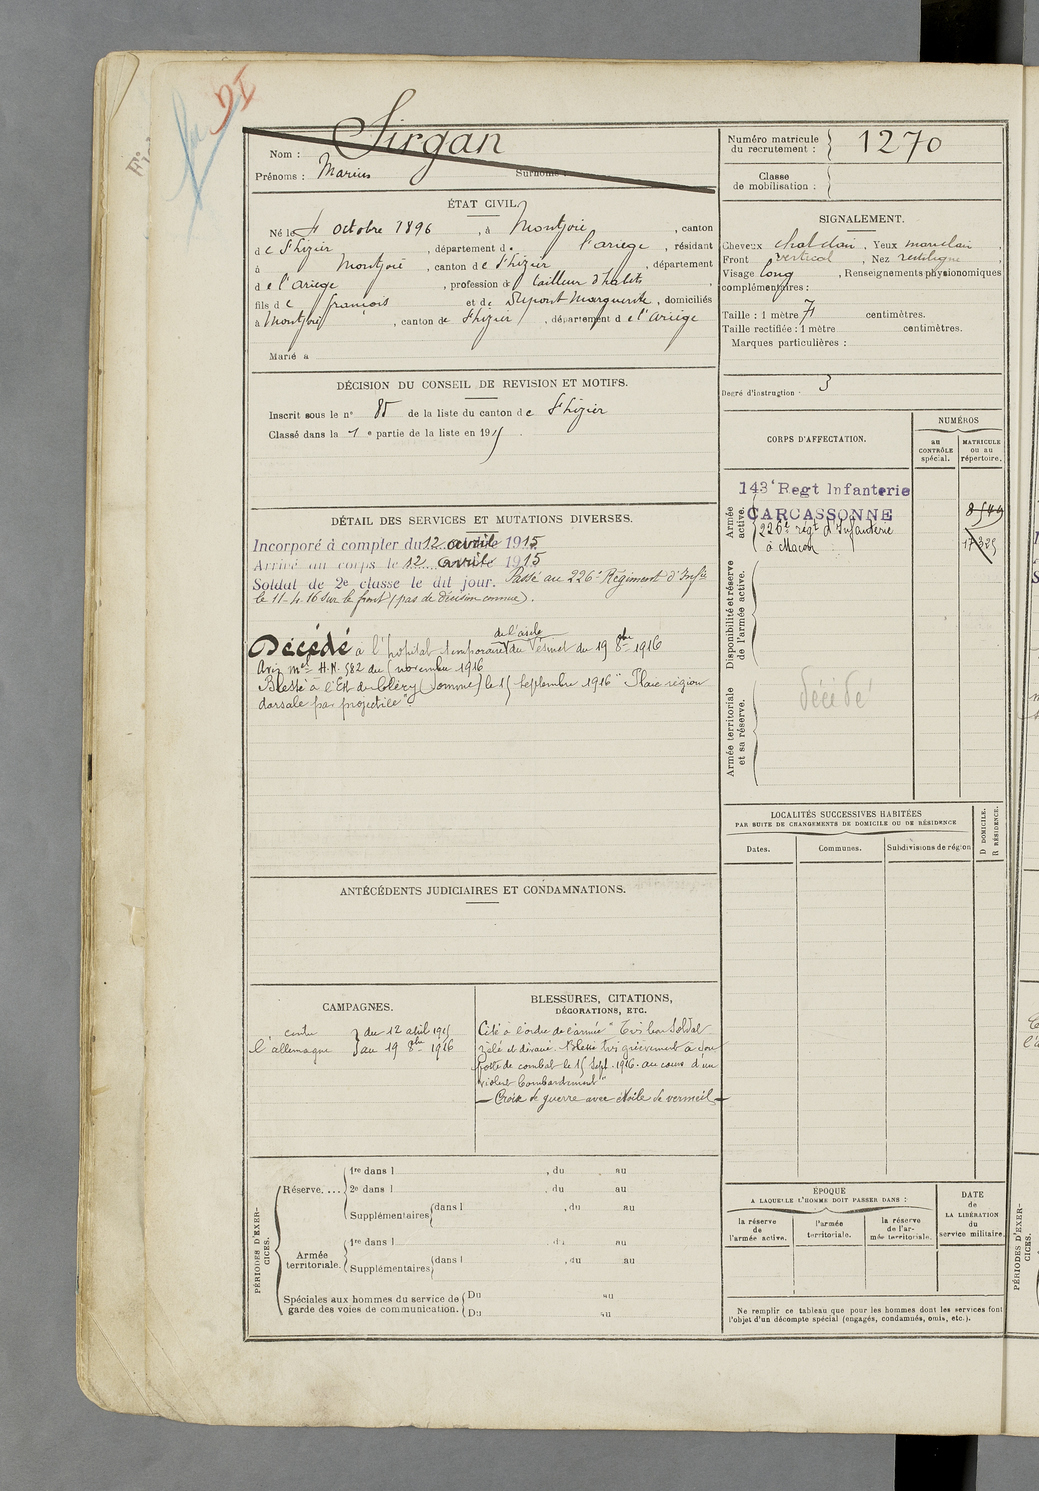 IG
Sirgan
Nom :
Prénoms : Marius Surnoms :
Numéro matricule
du recrutement : 1270
Classe
de mobilisation :
ÉTAT CIVIL.
Né le 4 octobre 1896, à Montjoie, canton
de St Lizier, département de l'ariège, résidant
à Montjoie, canton de St Lizier, département
de l'Ariège, profession de tailleur d'habits
fils de françois et de Dupont Marguerite, domiciliés
à Montjoie, canton de St Lizier, département de l'Ariège
Marié à
SIGNALEMENT.
Cheveux chat clair, Yeux mar clair,
Front vertical, Nez rectiligne,
Visage long, Renseignements physionomiques
complémentaires :
Taille : 1 mètre 71 centimètres.
Taille rectifiée : 1 mètre centimètres.
Marques particulières :
Degré d'instruction : 3
DÉCISION DU CONSEIL DE REVISION ET MOTIFS.
Inscrit sous le n° 85 de la liste du canton de St Lizier
Classé dans la 1e partie de la liste en 1915.
DÉTAIL DES SERVICES ET MUTATIONS DIVERSES.
Incorporé à compter du 12 avril 1915
Arrivé au corps le 12 avril 1915
Soldat de 2e classe le dit jour. Passé au 226e Régiment d'Infie
le 11-4-16 sur le front (pas de décision connue).
de l'asile
Décédé à l'hôpital temporaire du Vésinet du 19 8bre 1916
Avis mel H.N. 582 du novembre 1916
Blessé à l'Est de Cléry (Somme) le 15 Septembre 1916 "Plaie région
dorsale par projectile".
CORPS D'AFFECTATION.
NUMÉROS
au
CONTRÔLE
spécial.
MATRICULE
ou au
répertoire.
Armée
active.
143e Regt Infanterie
CARCASSONNE
8544
226e régt d'Infanterie
à Macon
17325
Disponibilité et réserve
de l'armée active.
Armée territoriale
et sa réserve.
décédé
LOCALITÉS SUCCESSIVES HABITÉES
PAR SUITE DE CHANGEMENTS DE DOMICILE OU DE RÉSIDENCE
D DOMICILE.
R RÉSIDENCE.
Dates. Communes. Subdivisions de région
ANTÉCÉDENTS JUDICIAIRES ET CONDAMNATIONS.
CAMPAGNES.
contre du 12 avril 1915
l'allemagne au 19 8bre 1916
BLESSURES, CITATIONS,
DÉCORATIONS, ETC.
Cité à l'ordre de l'armée "Très bon Soldat
zélé et dévoué. Blessé très grièvement à son
poste de combat le 15 Sept. 1916. au cours d'un
violent bombardement"
— Croix de guerre avec étoile de vermeil —
PÉRIODES D'EXERCICES.
Réserve....
1re dans l , du au
2e dans l , du au
Supplémentaires dans l , du au
Armée
territoriale.
1re dans l du au
Supplémentaires dans l , du au
Spéciales aux hommes du service de
garde des voies de communication.
Du au
Du au
ÉPOQUE
A LAQUELLE L'HOMME DOIT PASSER DANS :
la réserve
de
l'armée active.
l'armée
territoriale.
la réserve
de l'ar-
mée territoriale.
DATE
de
LA LIBÉRATION
du
service militaire.
Ne remplir ce tableau que pour les hommes dont les services font
l'objet d'un décompte spécial (engagés, condamnés, omis, etc.).
PÉRIODES D'EXER-
CICES.